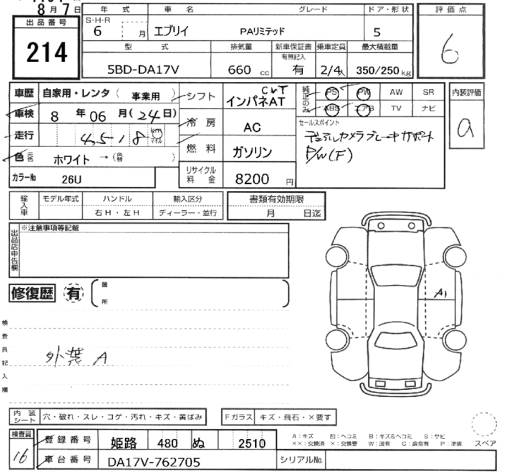 8月7日
出品番号
214
年式
車名
グレード
ドア・形状
評価点
S-H-R
6 月
エブリイ
PAリミテッド
5
6
型式
排気量
新車保証書
有無記入
乗車定員
最大積載量
5BD-DA17V
660 cc
有
2/4人
350/250 kg
車歴
自家用・レンタ（事業用）
シフト
CVT
インパネAT
純正のみ
PS
PW
AW
SR
内装評価
車検
8 年 06 月（24日）
ABS
TV
ナビ
a
走行
4518
km
マイル
冷房
AC
セールスポイント
デュアルカメラブレーキサポート
P/W(F)
色
ホワイト→
燃料
ガソリン
カラーNo
26U
リサイクル料金
8200円
輸入車
モデル年式
ハンドル
輸入区分
書類有効期限
右H・左H
ディーラー・並行
月 日迄
出品店申告欄
※注意事項等記載
修復歴
有
箇所
A1
検査員記入欄
外装A
内装シート
穴・破れ・スレ・コゲ・汚れ・キズ・黄ばみ
Fガラス
キズ・飛石・×要す
A：キズ
U：ヘコミ
B：キズ&ヘコミ
S：サビ
スペア
検査員
16
登録番号
姫路
480
ぬ
2510
××：交換済
×：交換要
W：波有
C：腐食有
P：塗装
車台番号
DA17V-762705
シリアルNo.